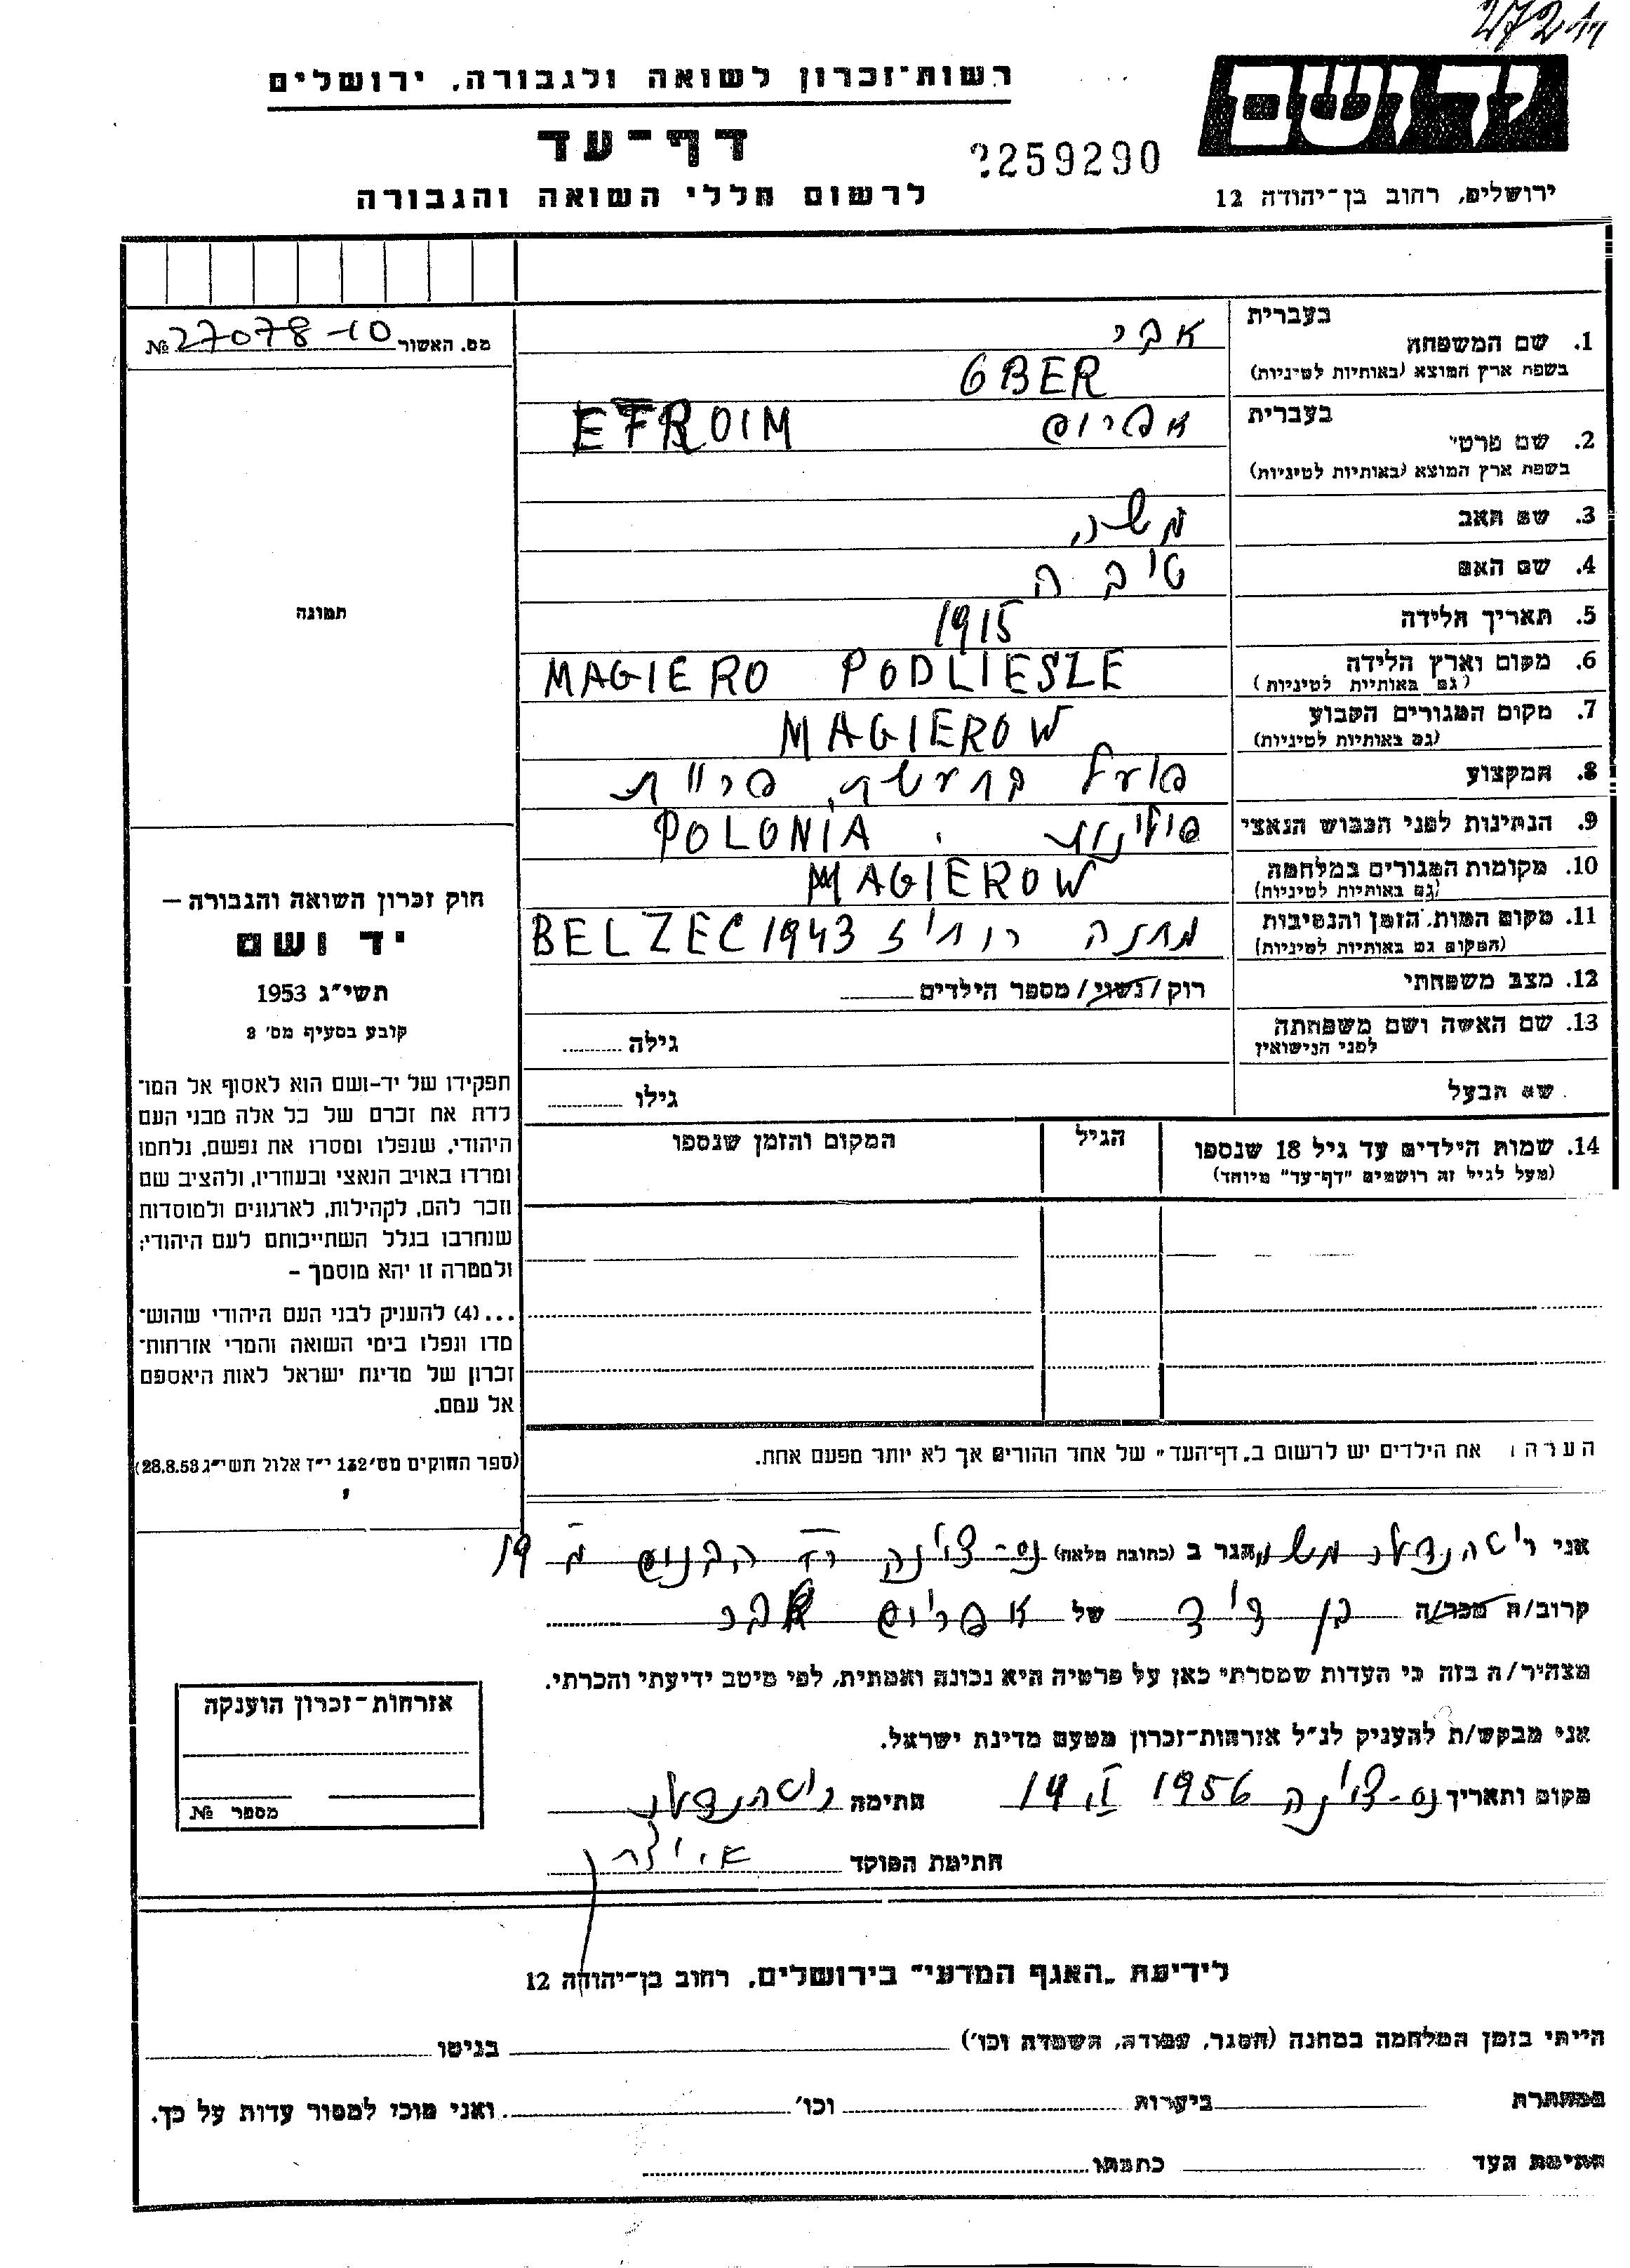 27211
רשות־זכרון לשואה ולגבורה, ירושלים
ידושם
דף־עד
2259290
לרשום חללי השואה והגבורה
ירושלים, רחוב בן־יהודה 12
מס. האשור № 27078-10
תמונה
1. שם המשפחה
בעברית
אבר
בשפת ארץ המוצא (באותיות לטיניות)
GBER
2. שם פרטי
בעברית
אפרים EFROIM
בשפת ארץ המוצא (באותיות לטיניות)
3. שם האב משה
4. שם האם טיבה
5. תאריך הלידה 1915
6. מקום וארץ הלידה MAGIERO PODLIESZE
(גם באותיות לטיניות)
7. מקום המגורים הקבוע MAGIEROW
(גם באותיות לטיניות)
8. המקצוע פועל בתעשיה
9. הנתינות לפני הכבוש הנאצי POLONIA
10. מקומות המגורים במלחמה MAGIEROW
(גם באותיות לטיניות)
11. מקום המות, הזמן והנסיבות מחנה BELZEC 1943
(המקום גם באותיות לטיניות)
12. מצב משפחתי רוק / נשוי / מספר הילדים
13. שם האשה ושם משפחתה גילה
לפני הנישואין
שם הבעל גילו
14. שמות הילדים עד גיל 18 שנספו הגיל המקום והזמן שנספו
(מעל לגיל זה רושמים "דף־עד" מיוחד)
חוק זכרון השואה והגבורה —
יד ושם
תשי״ג 1953
קובע בסעיף מס׳ 2
תפקידו של יד-ושם הוא לאסוף אל המו־
לדת את זכרם של כל אלה מבני העם
היהודי, שנפלו ומסרו את נפשם, נלחמו
ומרדו באויב הנאצי ובעוזריו, ולהציב שם
וזכר להם, לקהילות, לארגונים ולמוסדות
שנחרבו בגלל השתייכותם לעם היהודי;
ולמטרה זו יהא מוסמך —
...(4) להעניק לבני העם היהודי שהוש־
מדו ונפלו בימי השואה והמרי אזרחות־
זכרון של מדינת ישראל לאות היאספם
אל עמם.
(ספר החוקים מס׳ 132 י״ז אלול תשי״ג 28.8.53)
הערה: את הילדים יש לרשום ב„דף־העד״ של אחד ההורים אך לא יותר מפעם אחת.
אני משה הגר ב (כתובת מלאה) נס-ציונה 19
קרוב/ה מכר/ה בן דוד של אפרים אבר
מצהיר/ה בזה כי העדות שמסרתי כאן על פרטיה היא נכונה ואמתית, לפי מיטב ידיעתי והכרתי.
אני מבקש/ת להעניק לנ״ל אזרחות־זכרון מטעם מדינת ישראל.
מקום ותאריך נס-ציונה 1956 חתימה
חתימת הפוקד
אזרחות־זכרון הוענקה
מספר №
לידיעת „האגף המדעי״ בירושלים, רחוב בן־יהודה 12
הייתי בזמן המלחמה במחנה (הסגר, עבודה, השמדה וכו׳) בגיטו
במחתרת ביערות וכו׳ ואני מוכן למסור עדות על כך.
חתימת העד כתבתו